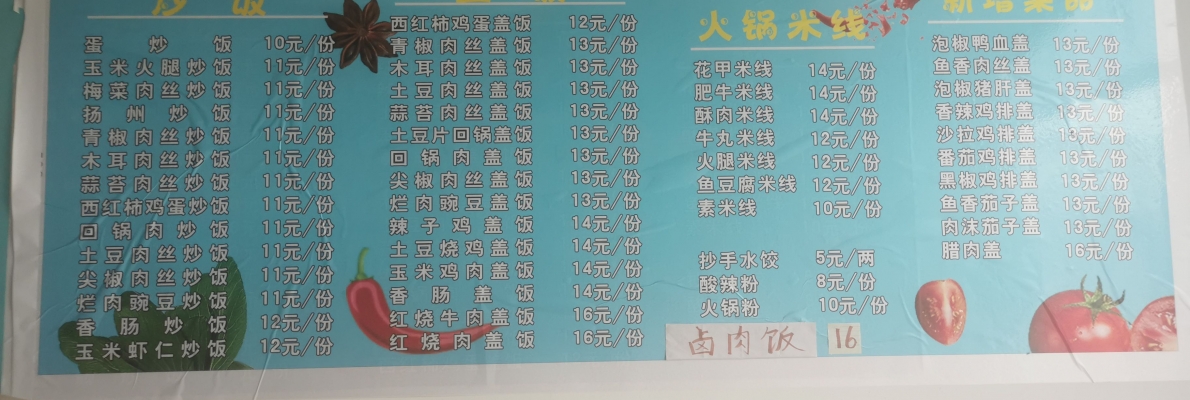 炒饭
蛋炒饭 10元/份
玉米火腿炒饭 11元/份
梅菜肉丝炒饭 11元/份
扬州炒饭 11元/份
青椒肉丝炒饭 11元/份
木耳肉丝炒饭 11元/份
蒜苔肉丝炒饭 11元/份
西红柿鸡蛋炒饭 11元/份
回锅肉炒饭 11元/份
土豆肉丝炒饭 11元/份
尖椒肉丝炒饭 11元/份
烂肉豌豆炒饭 11元/份
香肠炒饭 12元/份
玉米虾仁炒饭 12元/份
西红柿鸡蛋盖饭 12元/份
青椒肉丝盖饭 13元/份
木耳肉丝盖饭 13元/份
土豆肉丝盖饭 13元/份
蒜苔肉丝盖饭 13元/份
土豆片回锅盖饭 13元/份
回锅肉盖饭 13元/份
尖椒肉丝盖饭 13元/份
烂肉豌豆盖饭 13元/份
辣子鸡盖饭 14元/份
土豆烧鸡盖饭 14元/份
玉米鸡肉盖饭 14元/份
香肠盖饭 14元/份
红烧牛肉盖饭 16元/份
红烧肉盖饭 16元/份
火锅米线
花甲米线 14元/份
肥牛米线 14元/份
酥肉米线 14元/份
牛丸米线 12元/份
火腿米线 12元/份
鱼豆腐米线 12元/份
素米线 10元/份
抄手水饺 5元/两
酸辣粉 8元/份
火锅粉 10元/份
卤肉饭 16
新增菜品
泡椒鸭血盖 13元/份
鱼香肉丝盖 13元/份
泡椒猪肝盖 13元/份
香辣鸡排盖 13元/份
沙拉鸡排盖 13元/份
番茄鸡排盖 13元/份
黑椒鸡排盖 13元/份
鱼香茄子盖 13元/份
肉沫茄子盖 13元/份
腊肉盖 16元/份